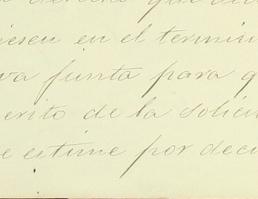 iesen en el termino
va junta para q
erito de la solici
e estime por deco